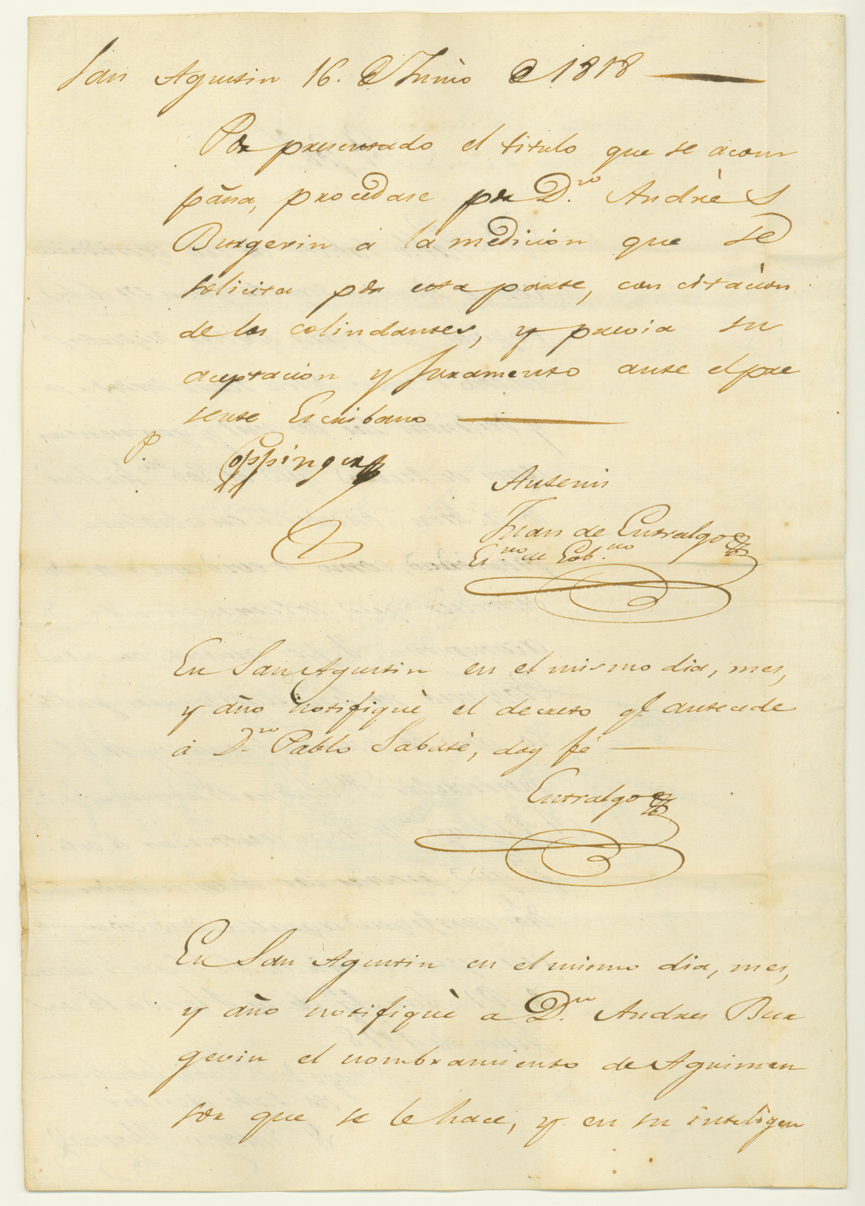 San Agustin 16. de Junio de 1818
Por presentado el titulo que se acom
paña, procedase por Dn. Andrès
Burgevin à la medicion que se
solicita por esta parte, con citaciòn
de los colindantes, y previa su
aceptacion y juramento ante el pre
sente Escribano
P. Coppinger
Antemi
Juan de Entralgo
Esno. de Gobno.
En San Agustin en el mismo dia, mes,
y año notifiquè el decreto qe. antecede
à Dn. Pablo Sabatè, doy fè
Entralgo
En San Agustin en el mismo dia, mes,
y año notifiquè a Dn. Andres Bur
gevin el nombramiento de Agrimen
sor que se le hace, y en su inteligen